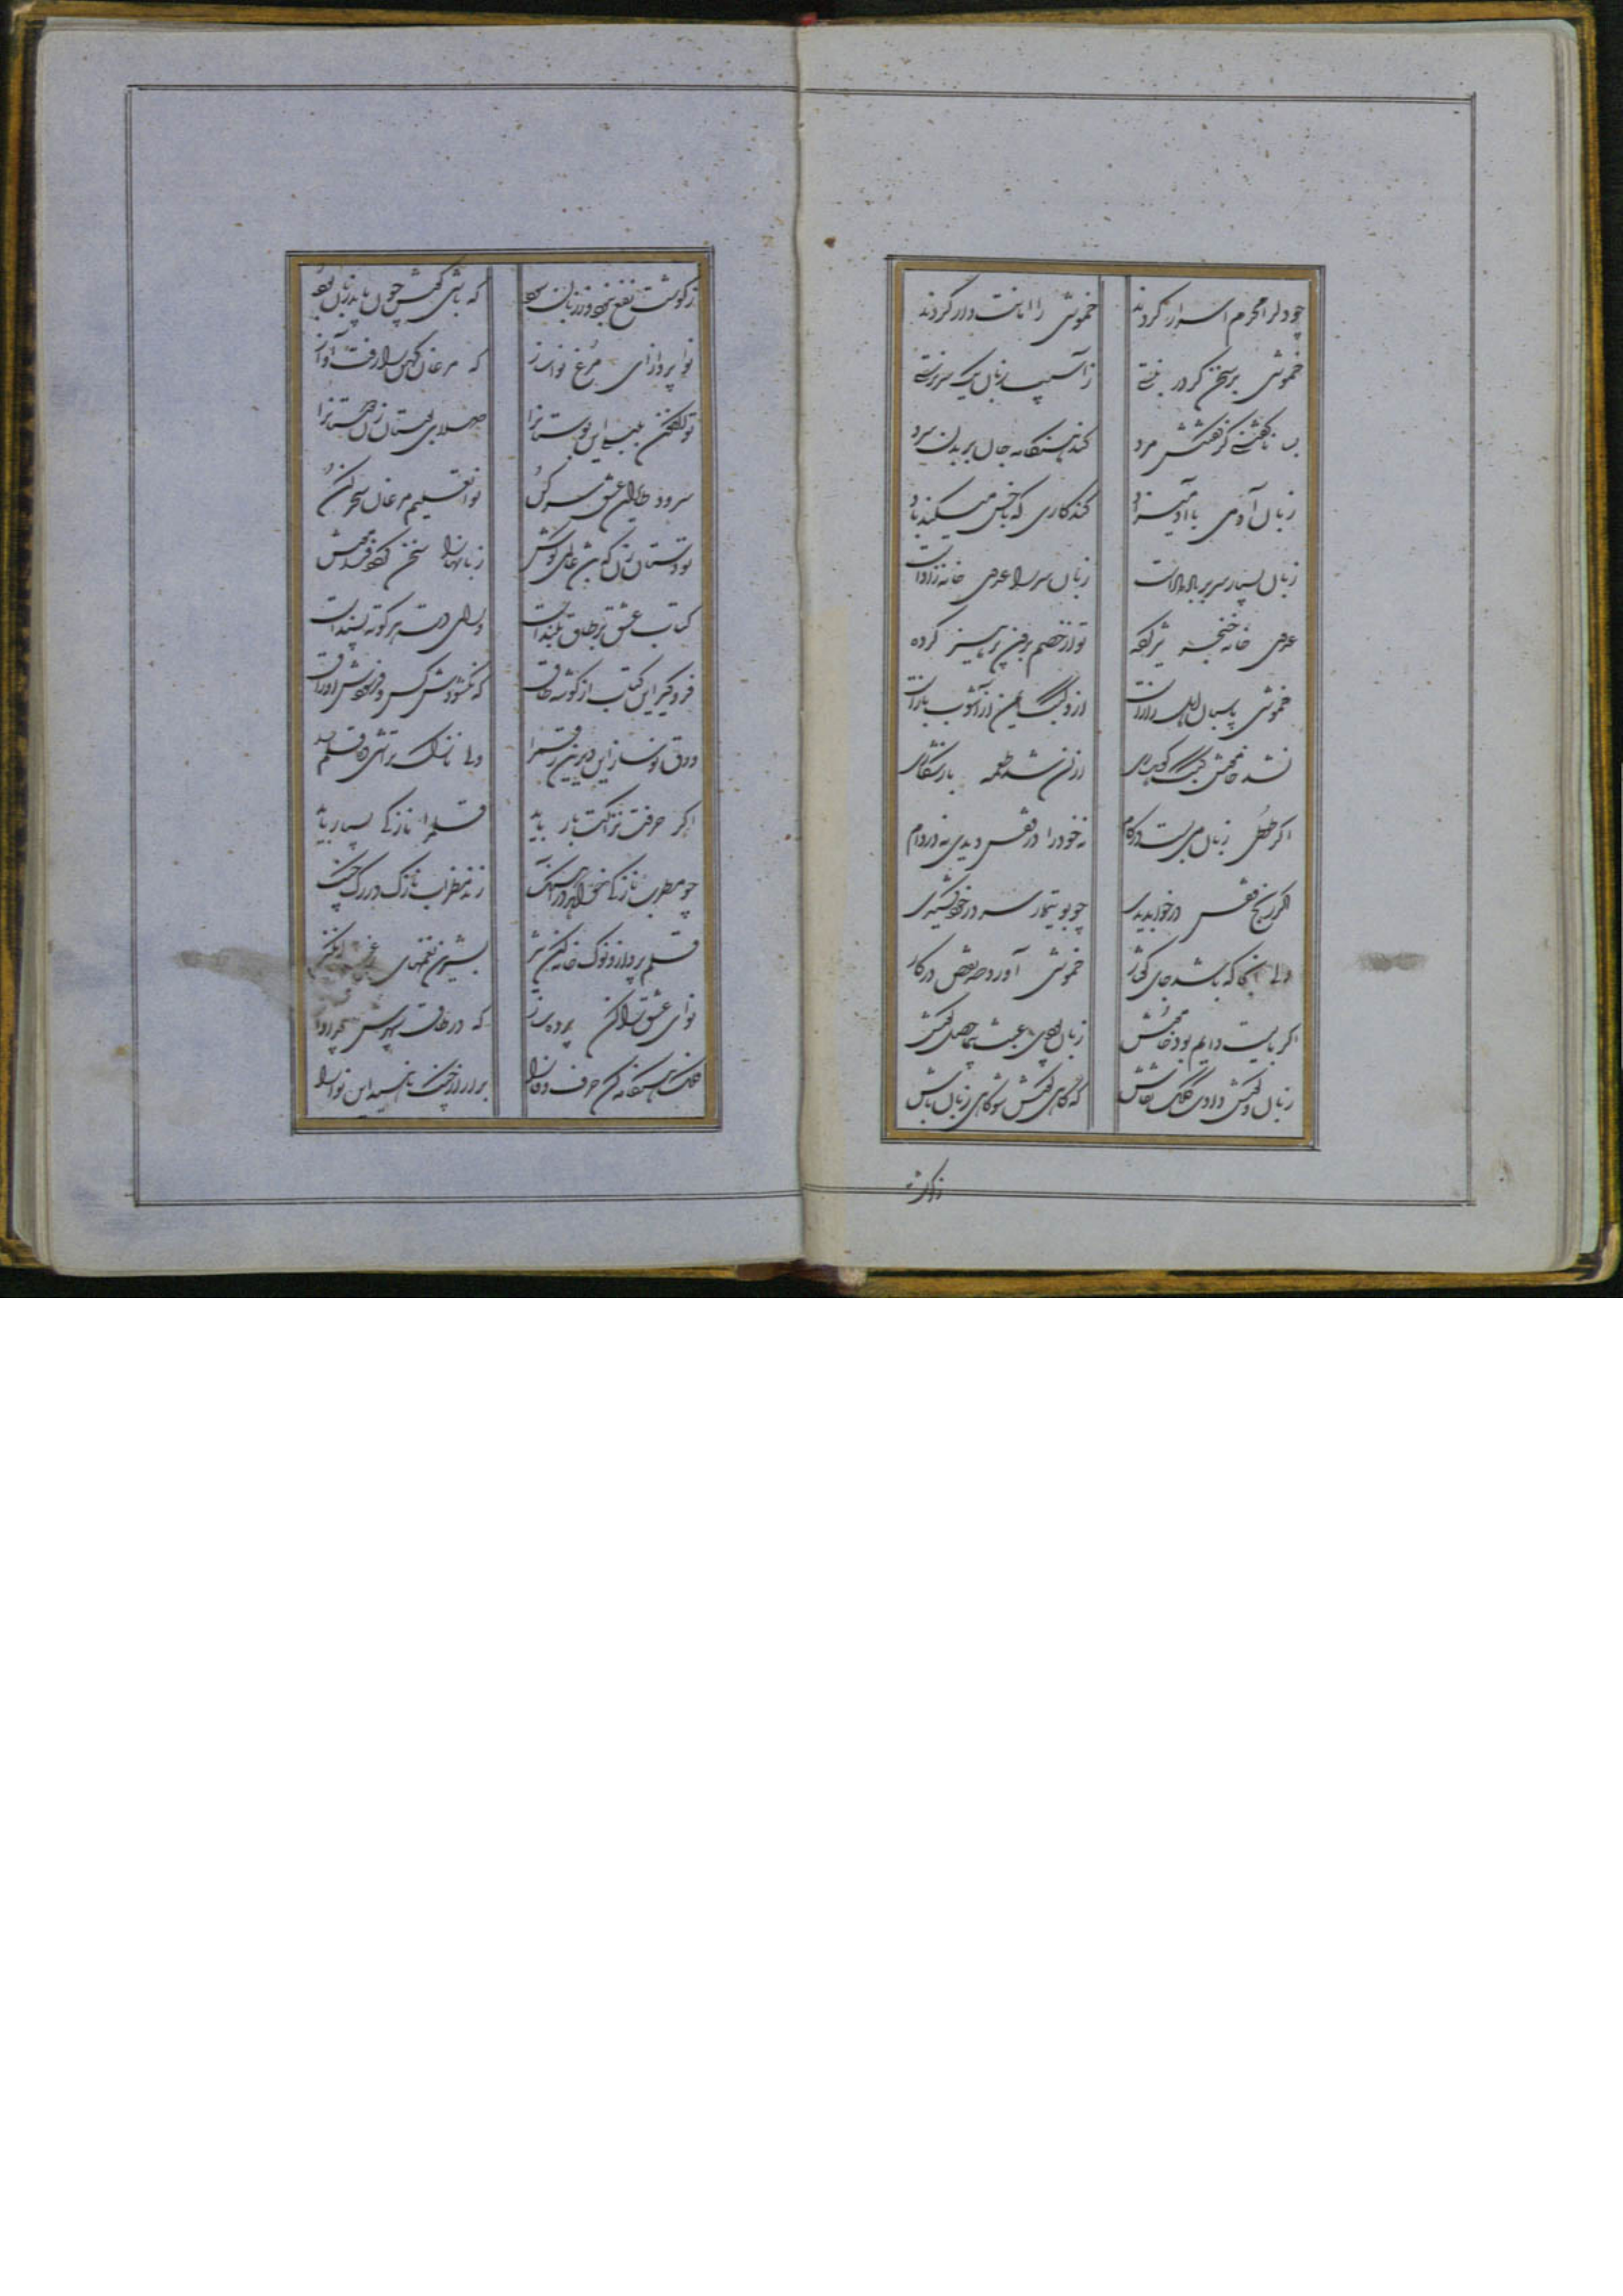 چو دلرا محرم اسرار کردند خموشی را امانت دار کردند
خموشی بر سخن کر در نبستی ز آسیب زبان یک سر نرستی
بسا ناکفتنی کز کفتنش مرد کند هنکامه جان بر بدن سرد
زبان آدمی با آدمیزاد کند کاری که با خس میکند باد
زبان بسیار سر بر باد دادست زبان سر را عدوی خانه زادست
عدوی خانه خنجر تیز کرده تو از خصم برون پرهیز کرده
خموشی پاسبان اهل رازست ازو کبک ایمن از آشوب بازست
نشد خاموش کبک کوهساری ازان شد طعمه باز شکاری
اکر طوطی زبان می بست در کام نه خود را در قفس دیدی نه در دام
اکر رنج قفس در خواب دیدی چو بوتیمار سر در خود کشیدی
ولی آنجا که باشد جای کفتار خموشی آورد صد نقص در کار
اکر بایست دایم بود خاموش زبان بودی عبث بیماحصل کوش
زبان و کوش دادت کلک نقاش که کاهی کوش شو کاهی زبان باش
زکوشت
ز کوشت نفع نبود وز زبان سود که باشی کوش چون باید زبان بود
نوا پرداز ای مرغ نواساز که مرغان دکر را رفت آواز
تو بلبل این بوستانرا صلای بوستان زن دوستانرا
سرود طایران عشق سر کن نوا تعلیم مرغان سحر کن
تو دستان زن که باشد عالمی کوش زبانها را سخن کردد فراموش
کتاب عشق بر طاق بلندست ورای دست هر کوته پسندست
فروکیر این کتاب از کوشه طاق که نکشودش کس و فرسودش اوراق
ورق نو ساز این دیرین رقم را ولی نازک تراشی ده قلم را
اکر حرفت نزاکت بار باید قلم را نازکی بسیار باید
چو مطرب نازکی خواهد در آهنک زند مضراب نازک در رک چنک
قلم بردار و نوک خامه کن تیز بشیرین نغمهای رغبت انکیز
نوای عشق را کن پرده ساز که در طاق سپهرش پیچد آواز
فلک هنکامه کن حرف وفا را برآر از چنک ناهید این نوا را